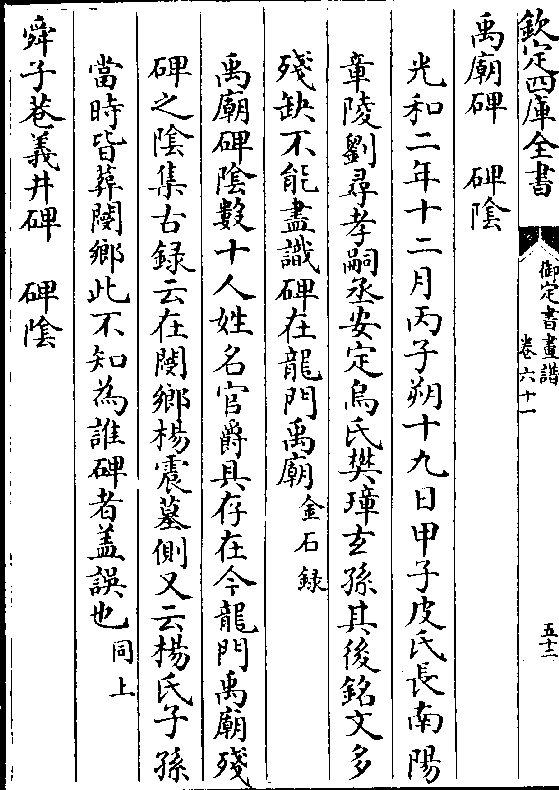 欽定四庫全書
御定書畫譜
卷六十一
五十二
禹廟碑 碑陰
光和二年十二月丙子朔十九日甲子皮氏長南陽
章陵劉尋孝嗣丞安定烏氏樊璋玄孫其後銘文多
殘缺不能盡識碑在龍門禹廟金石録
禹廟碑陰數十人姓名官爵具存在今龍門禹廟殘
碑之陰集古録云在閿鄉楊震墓側又云楊氏子孫
當時皆葬閿鄉此不知為誰碑者盖誤也同上
舜子巷義井碑 碑陰